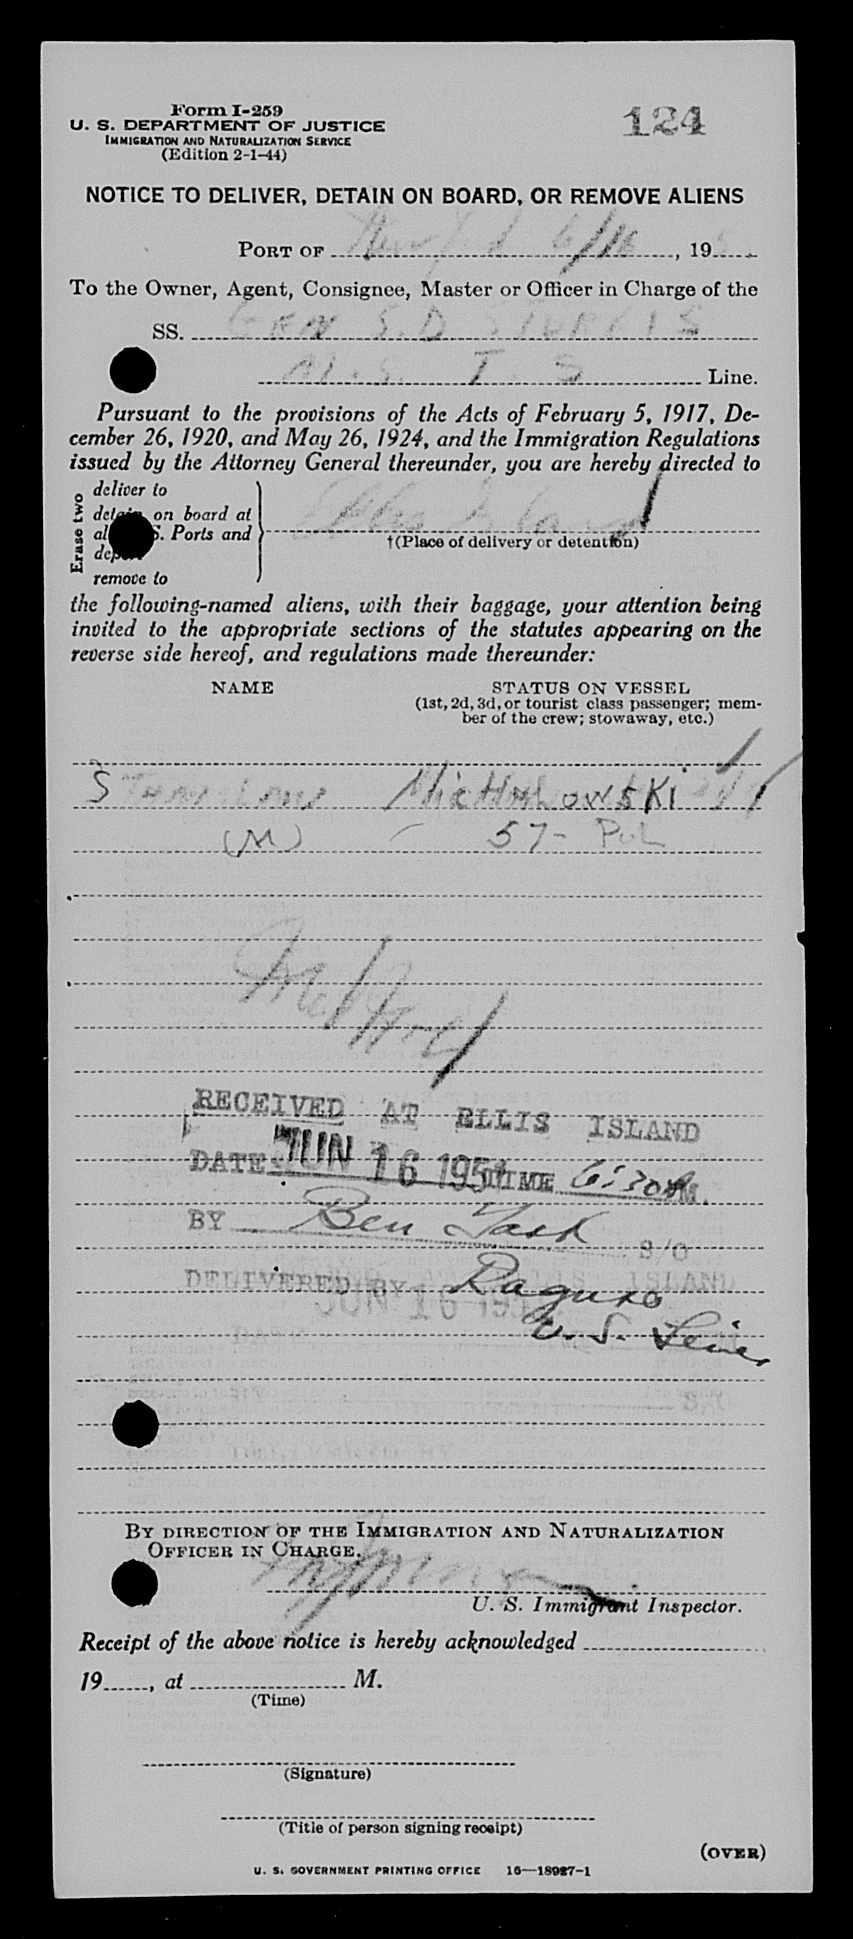 Form I-259
124
U. S. DEPARTMENT OF JUSTICE
IMMIGRATION AND NATURALIZATION SERVICE
(Edition 2-1-44)
NOTICE TO DELIVER, DETAIN ON BOARD, OR REMOVE ALIENS
PORT OF New York 6/16, 195
To the Owner, Agent, Consignee, Master or Officer in Charge of the
SS. GEN S.D STURGIS
M. S. T. S Line.
Pursuant to the provisions of the Acts of February 5, 1917, De-
cember 26, 1920, and May 26, 1924, and the Immigration Regulations
issued by the Attorney General thereunder, you are hereby directed to
Erase two
deliver to
detain on board at
all S. Ports and
remove to
Ellis Island
†(Place of delivery or detention)
the following-named aliens, with their baggage, your attention being
invited to the appropriate sections of the statutes appearing on the
reverse side hereof, and regulations made thereunder:
NAME STATUS ON VESSEL
(1st, 2d, 3d, or tourist class passenger; mem-
ber of the crew; stowaway, etc.)
Stanislaw Michalowski
(M) - 57 - Pol
RECEIVED AT ELLIS ISLAND
DATE JUN 16 195 TIME 6:30 P.M.
BY Ben S/O
DELIVERED BY Raguso
U. S.
BY DIRECTION OF THE IMMIGRATION AND NATURALIZATION
OFFICER IN CHARGE.
U. S. Immigrant Inspector.
Receipt of the above notice is hereby acknowledged
19, at M.
(Time)
(Signature)
(Title of person signing receipt)
(OVER)
U. S. GOVERNMENT PRINTING OFFICE 16—18927-1